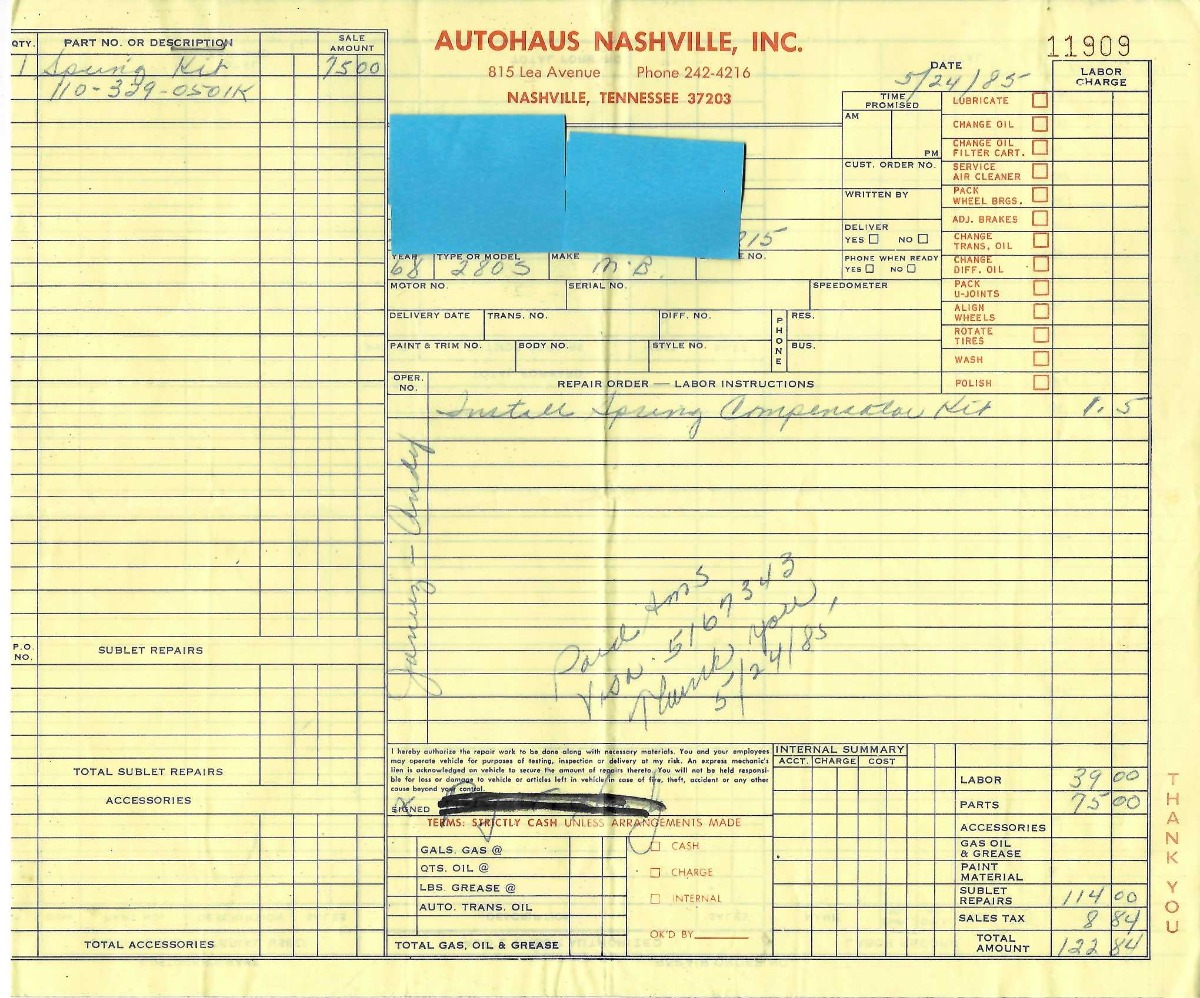 AUTOHAUS NASHVILLE, INC.
815 Lea Avenue Phone 242-4216
NASHVILLE, TENNESSEE 37203
11909
DATE
5/24/85
QTY. PART NO. OR DESCRIPTION SALE AMOUNT
1 Spring Kit 75 00
110-329-0501K
P.O. NO. SUBLET REPAIRS
TOTAL SUBLET REPAIRS
ACCESSORIES
TOTAL ACCESSORIES
TIME PROMISED
AM
PM
CUST. ORDER NO.
WRITTEN BY
DELIVER
YES NO
PHONE WHEN READY
YES NO
LABOR CHARGE
LUBRICATE
CHANGE OIL
CHANGE OIL FILTER CART.
SERVICE AIR CLEANER
PACK WHEEL BRGS.
ADJ. BRAKES
CHANGE TRANS. OIL
CHANGE DIFF. OIL
PACK U-JOINTS
ALIGN WHEELS
ROTATE TIRES
WASH
POLISH
15
YEAR TYPE OR MODEL MAKE E NO.
68 280S M.B.
MOTOR NO. SERIAL NO. SPEEDOMETER
DELIVERY DATE TRANS. NO. DIFF. NO. PHONE RES.
PAINT & TRIM NO. BODY NO. STYLE NO. BUS.
OPER. NO. REPAIR ORDER — LABOR INSTRUCTIONS
Install Spring Compensator Kit 1.5
Andy
Paid
Visa 5167343
Thank you,
5/24/85
I hereby authorize the repair work to be done along with necessary materials. You and your employees
may operate vehicle for purposes of testing, inspection or delivery at my risk. An express mechanic's
lien is acknowledged on vehicle to secure the amount of repairs thereto. You will not be held responsi-
ble for loss or damage to vehicle or articles left in vehicle in case of fire, theft, accident or any other
cause beyond your control.
SIGNED X
TERMS: STRICTLY CASH UNLESS ARRANGEMENTS MADE
GALS. GAS @
QTS. OIL @
LBS. GREASE @
AUTO. TRANS. OIL
TOTAL GAS, OIL & GREASE
CASH
CHARGE
INTERNAL
OK'D BY
INTERNAL SUMMARY
ACCT. CHARGE COST
LABOR 39 00
PARTS 75 00
ACCESSORIES
GAS OIL & GREASE
PAINT MATERIAL
SUBLET REPAIRS 114 00
SALES TAX 8 84
TOTAL AMOUNT 122 84
THANK YOU